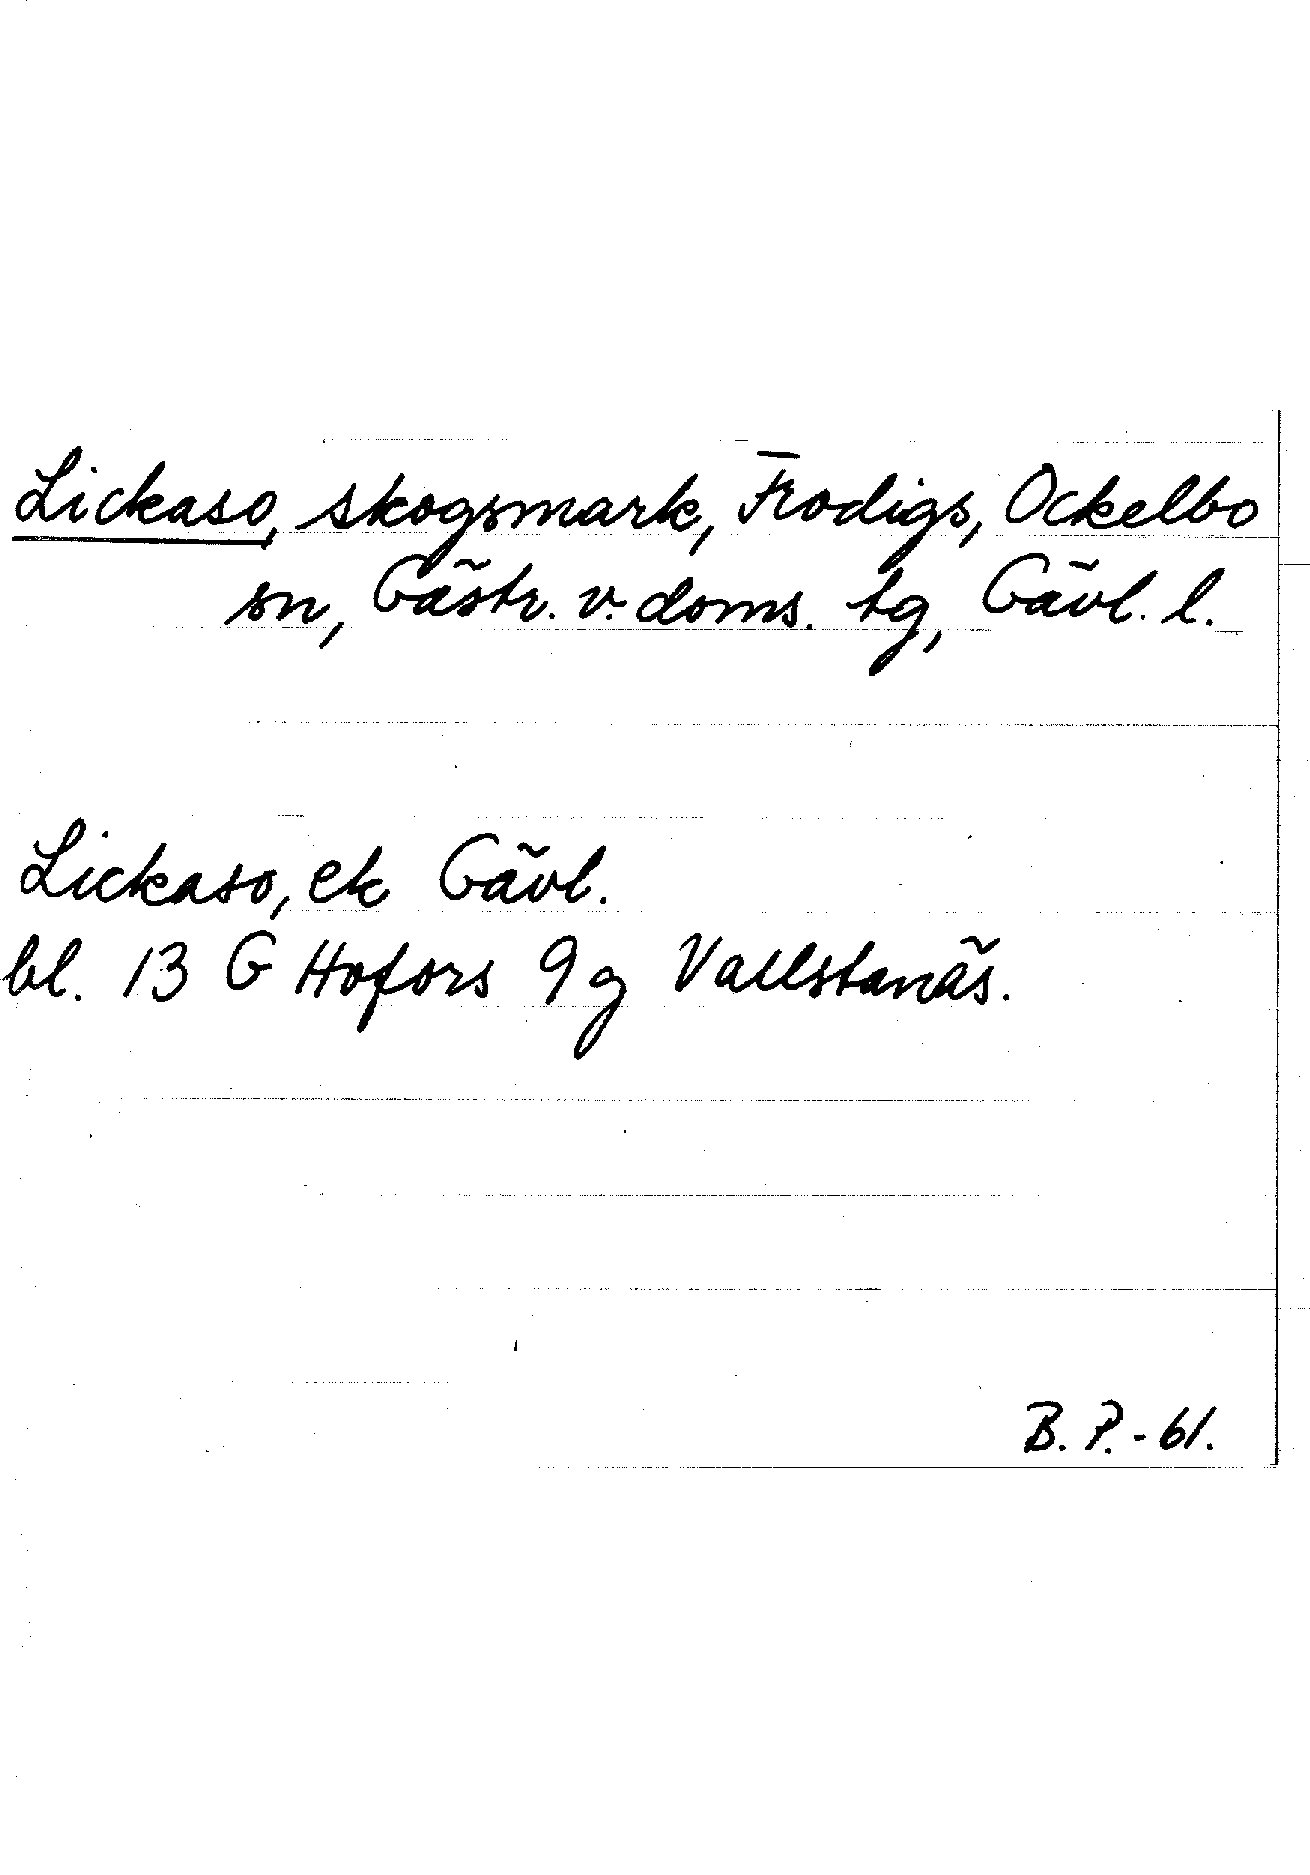 Lickaso, skogsmark, Frodigs, Ockelbo
sn, Gästr. v. doms. tg, Gävl. l.
Lickaso, ek Gävl.
bl. 13 G Hofors 9g Vallstanäs.
B. P. - 61.